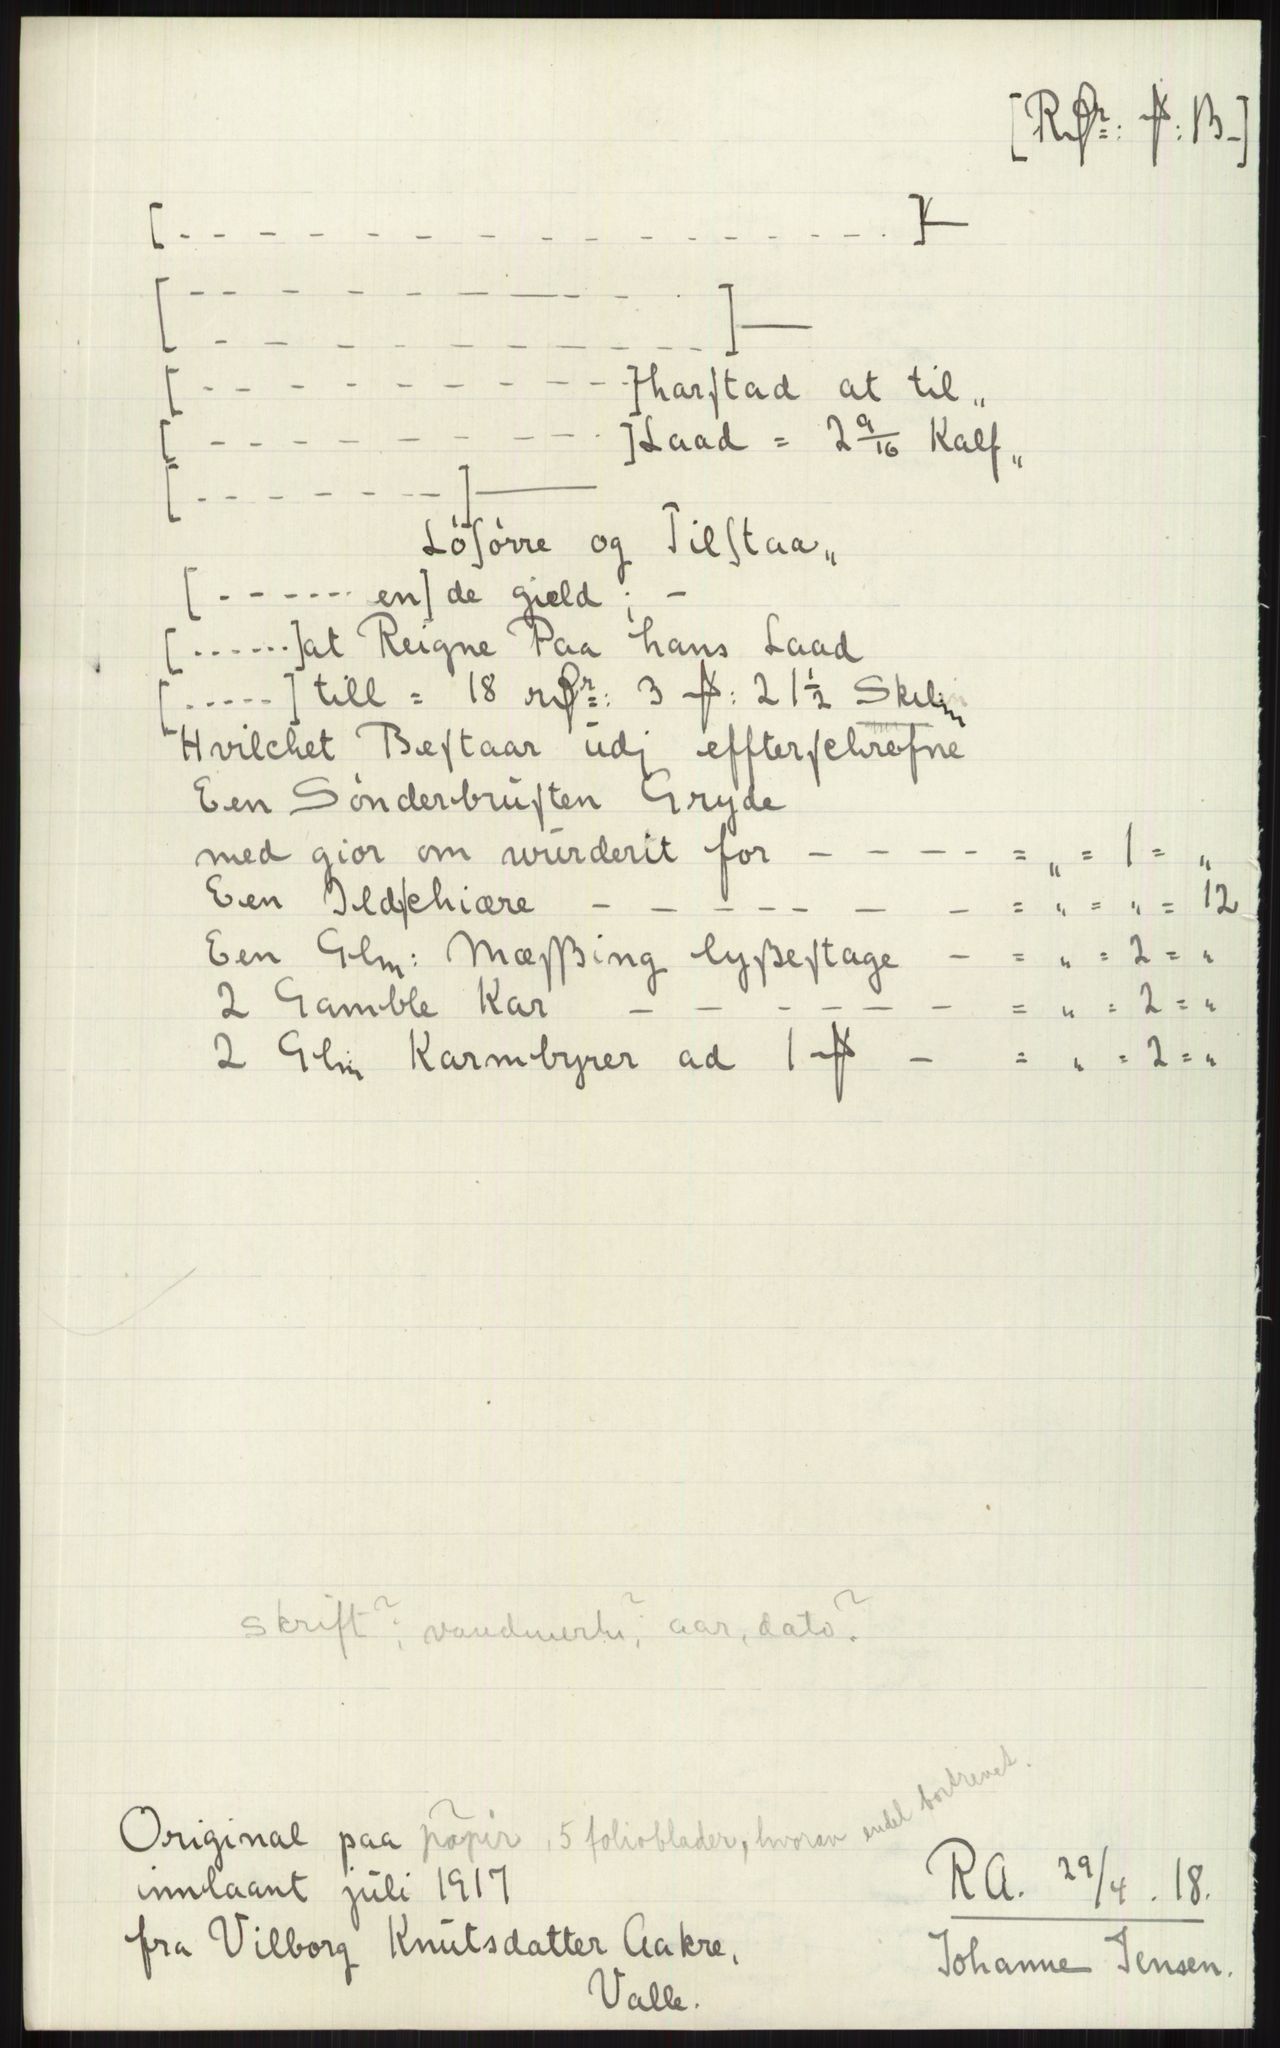 [Rdr: ƒ: ß-]
[- - - - - - - - - - - - - - -]—
[- - - - - - - - - -
- - - - - - - - - -]—
[- - - - - - - - -]harstad at til„
[- - - - - - - - -]Laad = 2 9/16 Kalf„
[- - - - - - -]—
Lösörre og Tilstaa„
[- - - - - - en]de gield ; -
[......]at Reigne Paa hans Laad
[.....] till = 18 rdr: 3 ƒ: 21½ Skilm
Hvilchet Bestaar udj effterschrefne
Een Sönderbrusten Gryde
med gior om wurderit for - - - - = „ = 1 = „
Een Ildschiære - - - - - - - = „ = „ = 12
Een Glm: Mæssßing lyßestage - = „ = 2 = „
2 Gamble Kar - - - - - - - = „ = 2 = „
2 Glm Karmbyrer ad 1 ƒ - = „ = 2 = „
skrift?; vandmerke?; aar, dato?
Original paa papir?, 5 folioblader, hvorav endel bortrevet.
innlaant juli 1917
fra Vilborg Knutsdatter Aakre,
Valle.
RA. 29/4. 18.
Johanne Jensen.